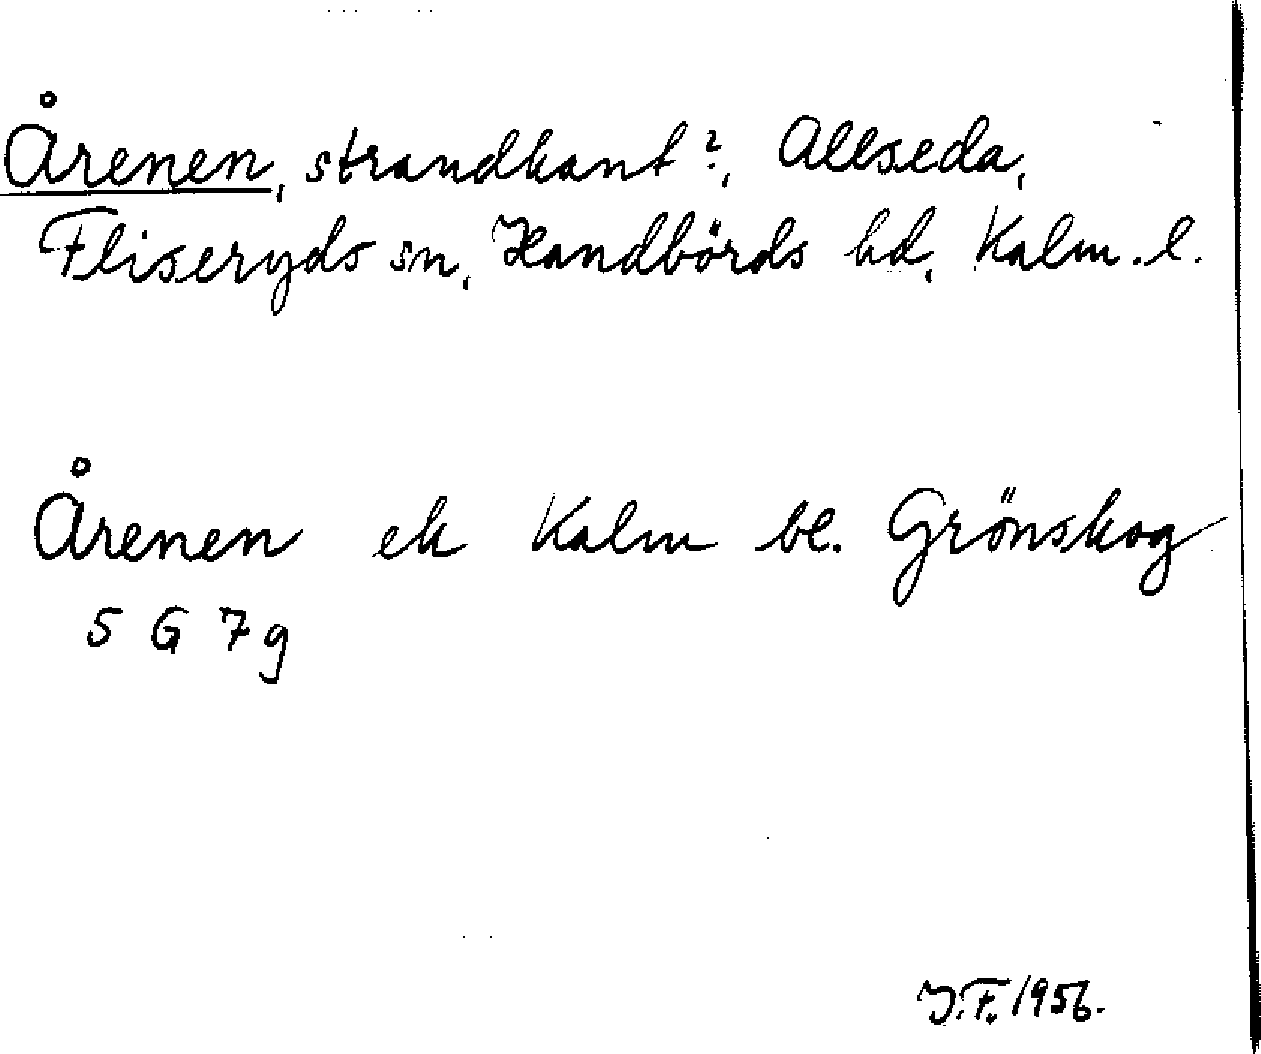 Årenen, strandkant?, Allseda,
Fliseryds sn, Handbörds hd, Kalm. l.
Årenen ek Kalm bl. Grönskog
5 G 7 g
J.F. 1956.